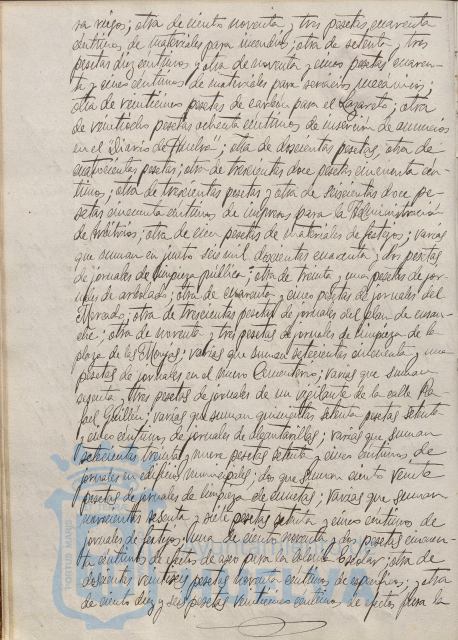 ra riegos; otra de ciento noventa y tres pesetas cuarenta
céntimos de materiales para incendios; otra de setenta y tres
pesetas diez céntimos y otra de noventa y cinco pesetas cuaren-
ta y cinco céntimos de materiales para servicios mecánicos;
otra de veinticinco pesetas de carbón para el Lazareto; otra
de veintiocho pesetas ochenta céntimos de inserción de anuncios
en el "Diario de Huelva"; otra de doscientas pesetas; otra de
cuatrocientas pesetas; otra de trescientas doce pesetas cincuenta cén-
timos; otra de trescientas pesetas y otra de seiscientas doce pe-
setas cincuenta céntimos de impresos para la Administración
de Arbitrios; otra de cien pesetas de materiales de festejos; varias
que suman en junto seis mil doscientas cuarenta y dos pesetas
de jornales de limpieza pública; otra de treinta y una pesetas de jor-
nales de arbolado; otra de cuarenta y cinco pesetas de jornales del
Mercado; otra de trescientas pesetas de jornales del plan de ensan-
che; otra de noventa y tres pesetas de jornales de limpieza de la
plaza de las Monjas; varias que suman setecientas cincuenta y una
pesetas de jornales en el nuevo Cementerio; varias que suman
sesenta y tres pesetas de jornales de un vigilante de la calle Ra-
fael Guillén; varias que suman quinientas setenta pesetas setenta
y cinco céntimos de jornales de alcantarillas; varias que suman
setecientas treinta y nueve pesetas setenta y cinco céntimos de
jornales en edificios municipales; dos que suman ciento veinte
pesetas de jornales de limpieza de cunetas; varias que suman
sesenta y siete pesetas setenta y cinco céntimos de
jornales de festejos; una de ciento noventa y dos pesetas cincuen-
ta céntimos de efectos de aseo para la Colonia Escolar; otra de
doscientas veintiseis pesetas noventa céntimos de; y otra
de ciento diez y seis pesetas veinticinco céntimos de efectos para la